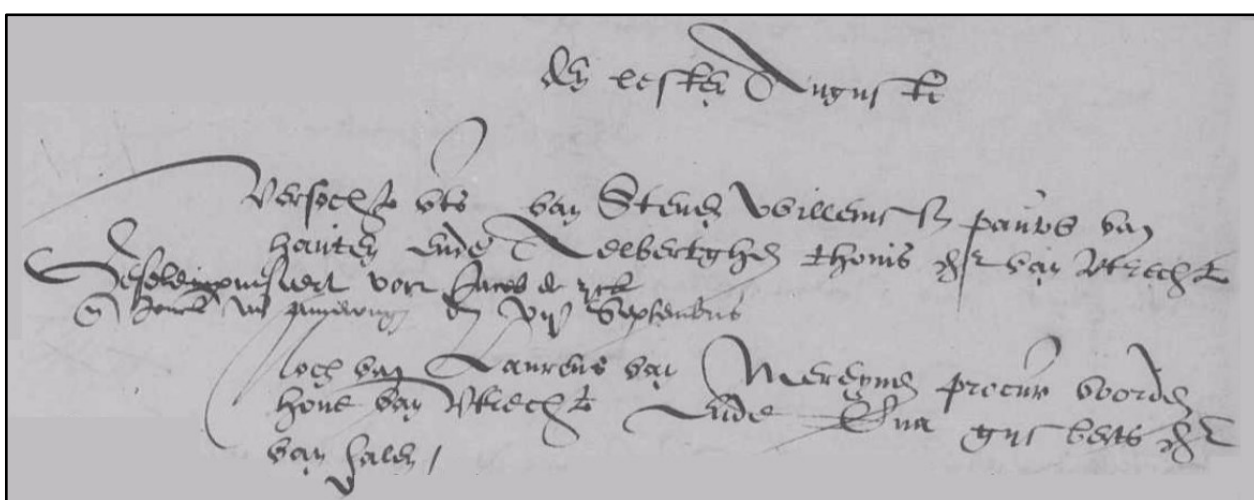 den eesten Augusti
Versocht uts van Steven Willemss pauws van
hauten ende Reebertghen thonis dr van Utrecht
Gesolempniseert voor Jacob de
den vij Septembris
Noch van Laurens van Mereynen procur voorden
Hove van Utrecht ende Anna gysberts dr
van halen /